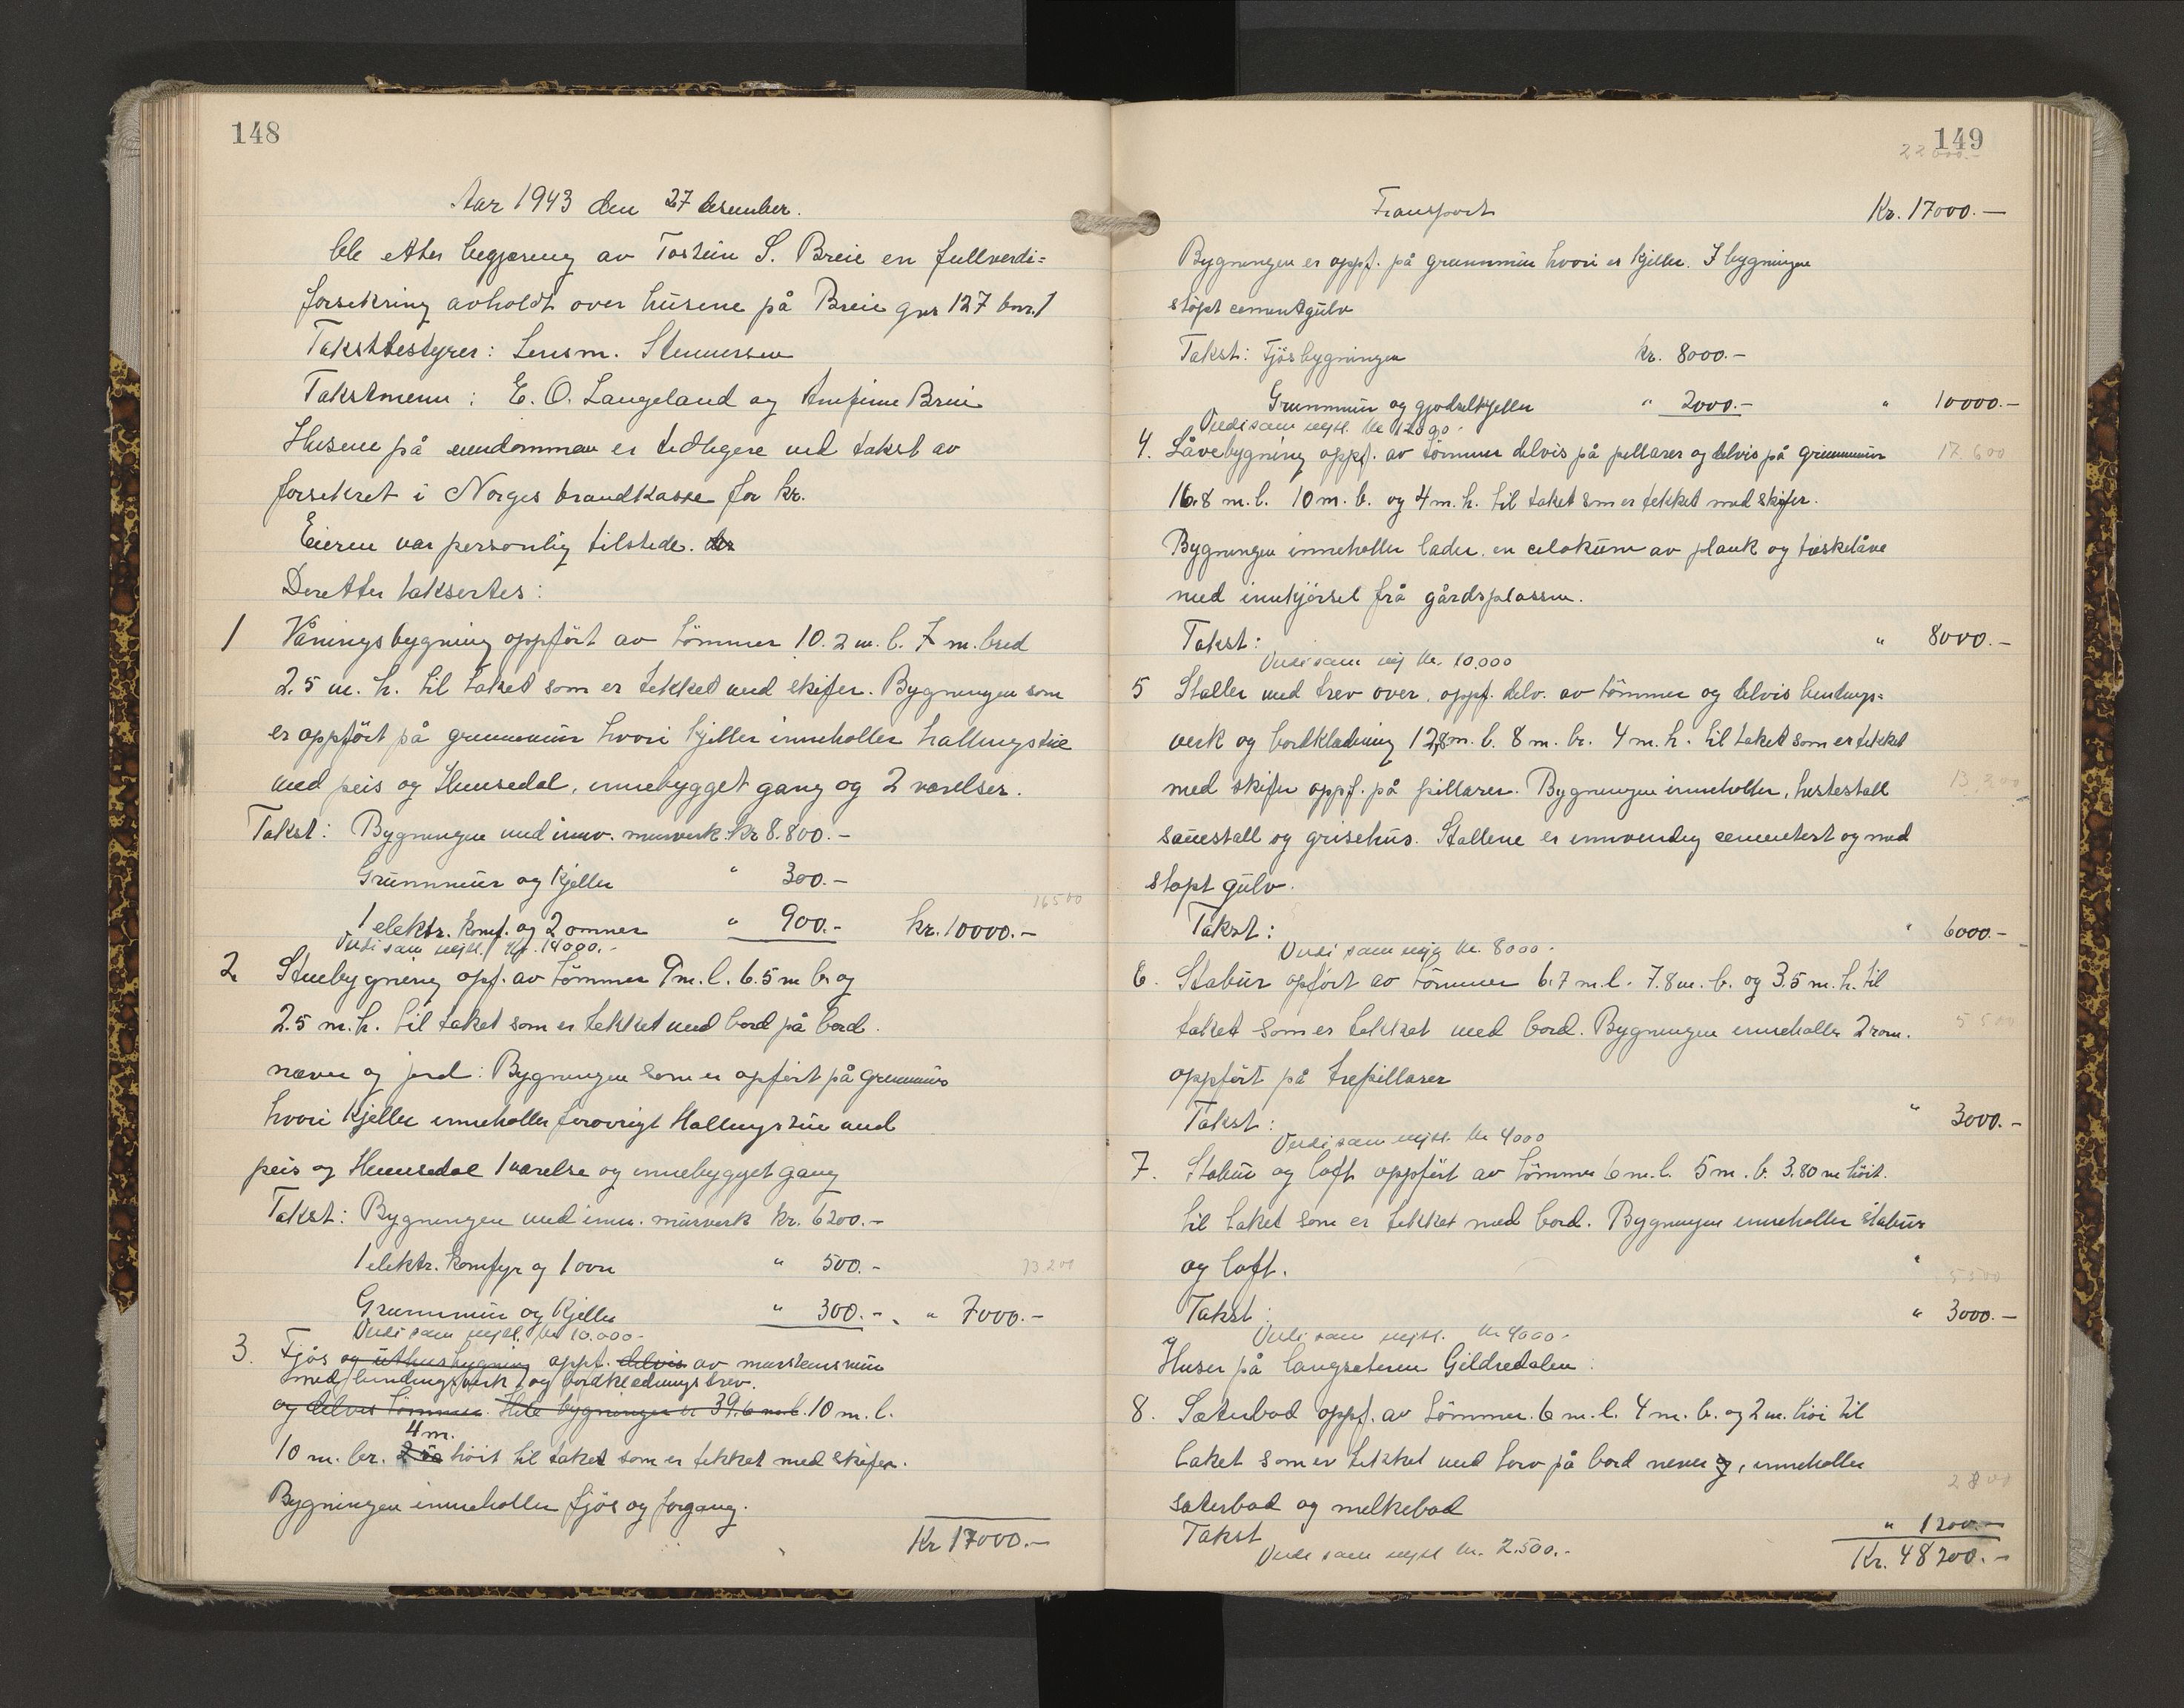 148
Aar 1943 den 27 desember.
ble etter begjæring av Torstein S. Breie en fullverdi=
forsekring avholdt over husene på Breie gnr 127 bnr. 1
Takstbestyrer: Lensm. Stenersen
Takstmenn: E. O. Langeland og Arnfinn Breie
Husene på eiendommen er tidligere ved takst av
forsekret i Norges brandkasse for kr.
Eieren var personlig tilstede.
Deretter taksertes:
1 Våningsbygning oppført av tømmer 10.2 m. l. 7 m. bred
2.5 m. h. til taket som er tekket med skifer. Bygningen som
er oppført på grunnmur hvori kjeller inneholler hallingstue
med peis og Hemsedal, innebygget gang og 2 værelser.
Takst: Bygningen med innv. murverk. kr 8.800.-
Grunnmur og Kjeller " 300.-
16500
1 elektr. komf. og 2 omner " 900.- kr. 10000.-
Verdi sam nytt. kr. 14000.-
2 Stuebygning opf. av tömmer 9 m. l. 6.5 m br og
2.5 m. h. til taket som er tekket med bord på bord
næver og jord: Bygningen som er opført på grunnmur
hvori Kjeller inneholler forøvrigt Hallingstue med
peis og Hemsedal 1 værelse og innebygget gang
Takst: Bygningen med innv. murverk kr. 6200.-
1 elektr. Komfyr og 1 ovn " 500.-
13.200
Grunnmur og Kjeller " 300.- " 7000.-
Verdi sam nytt. kr 10.000-
3. Fjøs og uthusbygning oppf. delvis av murstensmur
med bindingsverk og bordklednings trev.
og delvis tömmer. Hele bygningen er 39.6 m. l. 10 m. l.
4 m.
10 m. br. høit til taket som er tekket med skifer.
Bygningen inneholler fjös og forgang.
Kr 17000.-
149
22000.-
Transport Kr. 17000.-
Bygningen er oppf. på grunnmur hvori er kjeller. I bygningen
støpt cementgulv
Takst: Fjösbygningen kr. 8000.-
Grunnmur og gjødselkjeller " 2000.- " 10000.-
Verdi sam nytt. kr 12000.-
4. Låvebygning oppf. av tömmer delvis på pillarer og delvis på grunnmur 17.600
16.8 m. l. 10 m. b. og 4 m. h. til taket som er tekket med skifer.
Bygningen inneholler lader, en celokum av plank og træskelåve
med innkjørsel frå gårdsplassen.
Takst: " 8000.-
Verdi sam nytt kr. 10.000
5 Staller med trev over, oppf. delv. av tömmer og delvis bindings=
verk og bordkledning 12,8 m. l. 8 m. br. 4 m. h. til taket som er tekket
med skifer oppf. på pillarer. Bygningen inneholler, hestestall 13.200
sauestall og grisehus. Stallene er innvendig cementert og med
støpt gulv.
Takst: " 6000.-
Verdi sam nytt kr. 8000-
6. Stabur opført av tömmer 6.7 m. l. 7.8 m. b. og 3.5 m. h. til
taket som er tekket med bord. Bygningen inneholler 2 rom. 5500
oppført på trepillarer
Takst: " 3000.-
Verdi sam nytt. kr 4000
7. Stabur og loft oppført av tömmer 6 m. l. 5 m. b. 3.80 m höit.
til taket som er tekket med bord. Bygningen inneholler stabur
og loft.
5500
Takst: " 3000.-
Verdi sam nytt. kr 4000-
Huser på langseteren Gildredalen:
8. Sæterbod oppf. av tömmer. 6 m. l. 4 m. b. og 2 m. höi til
taket som er tekket med torv på bord never og, inneholler
2800
sæterbod og melkebod
Takst " 1200.-
Verdi sam nytt kr. 2.500.-
Kr. 48200.-